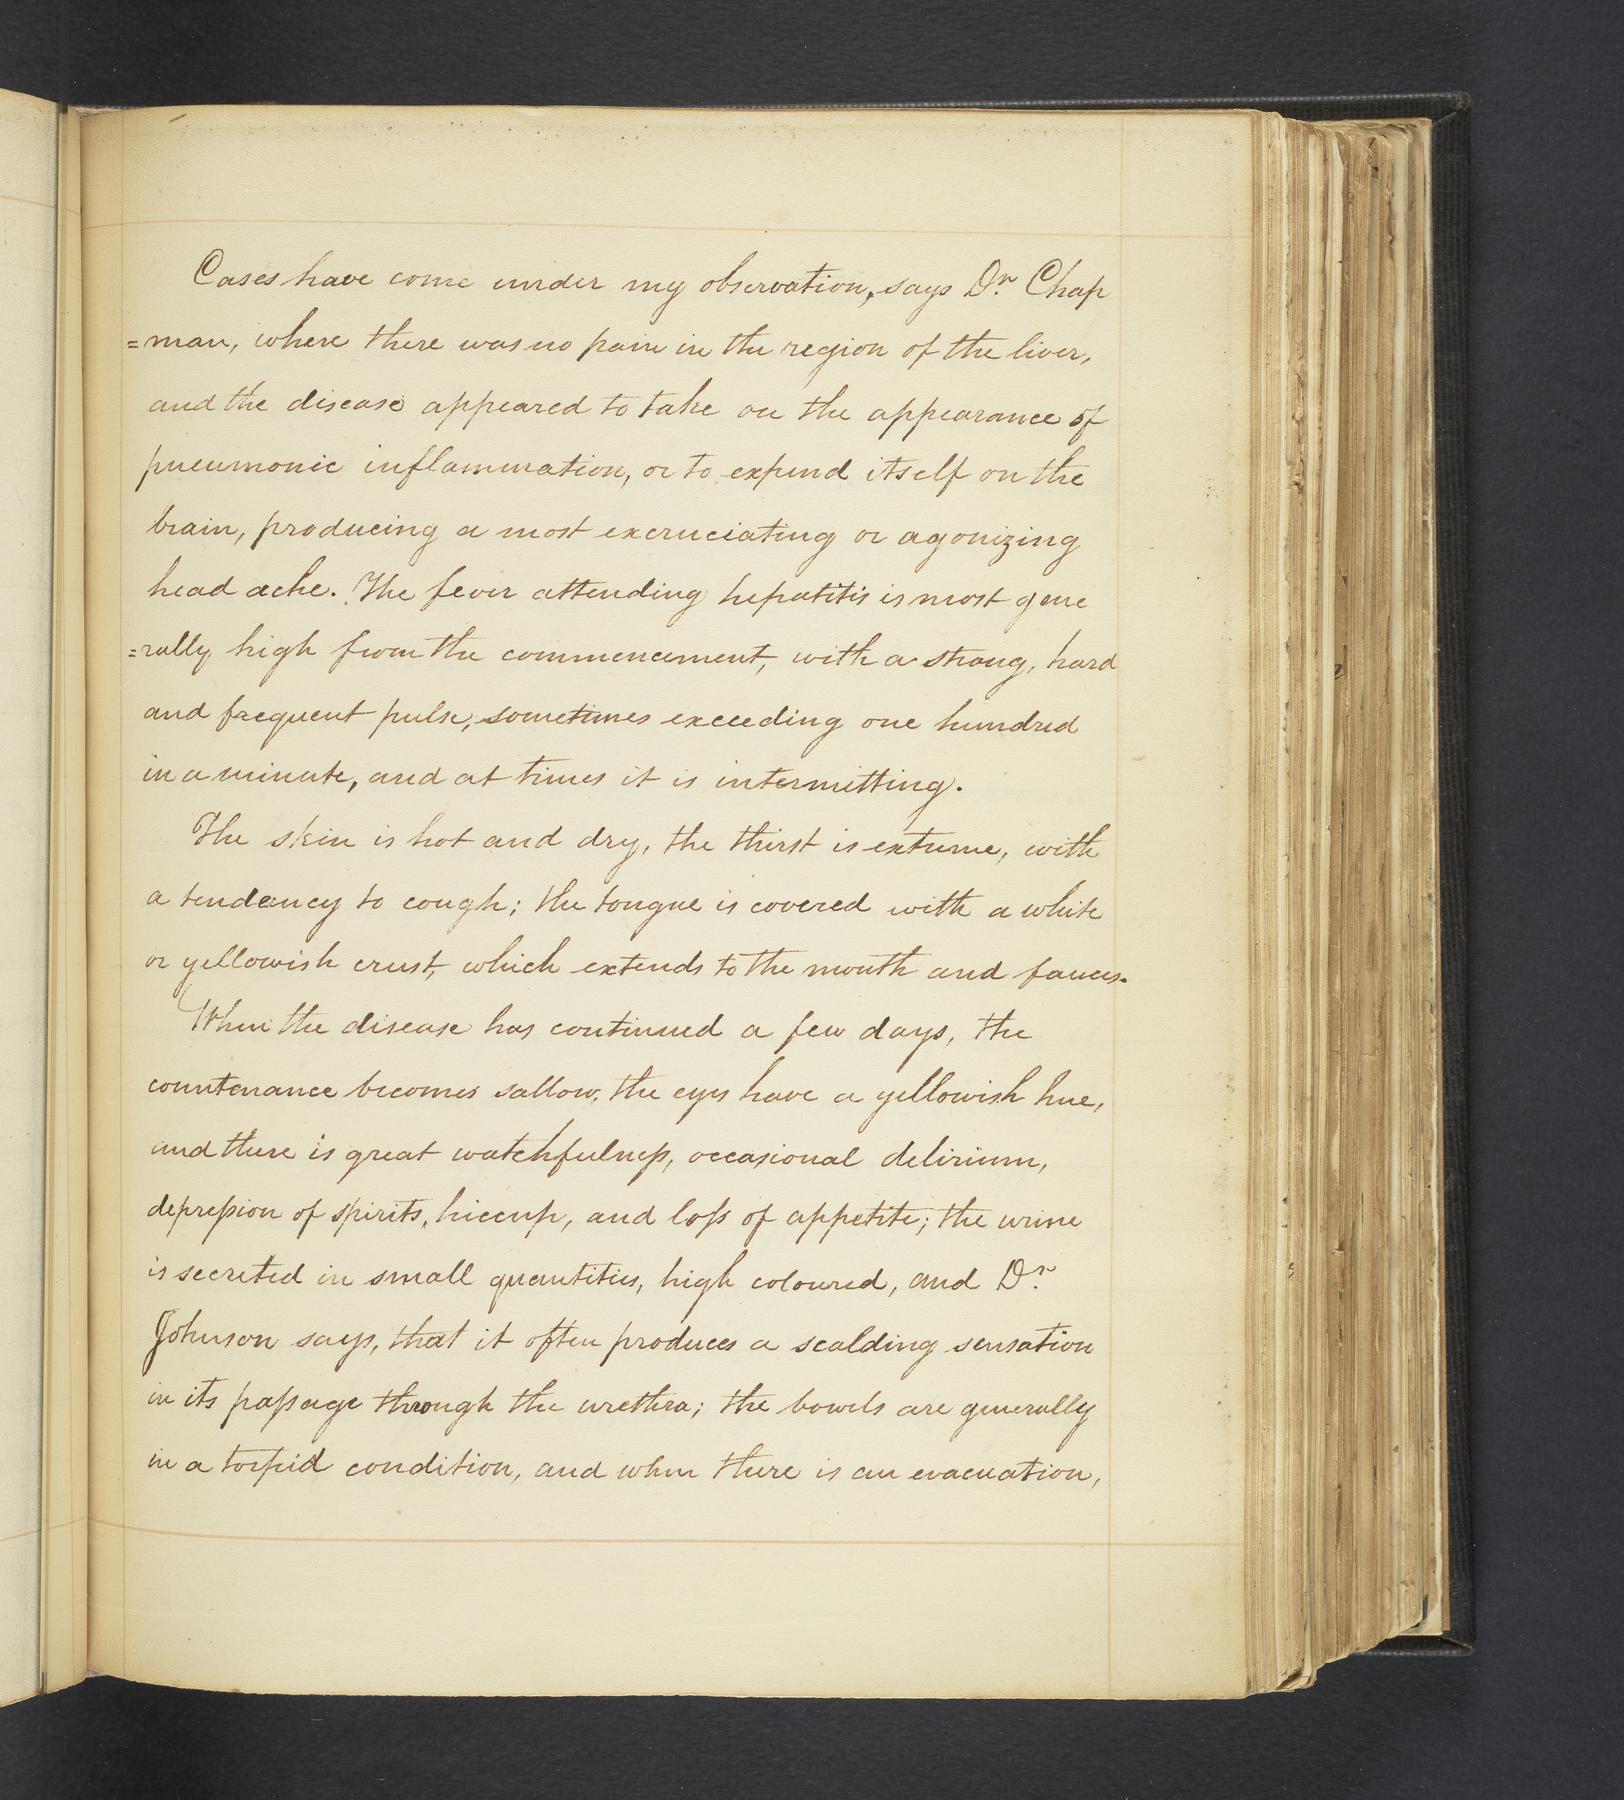 Cases have come under my observation, says Dr. Chap
=man, where there was no pain in the region of the liver,
and the disease appeared to take on the appearance of
pneumonic inflammation, or to expend itself on the
brain, producing a most excruciating or agonizing
head ache. The fever attending hepatitis is most gene
=rally high from the commencement, with a strong, hard
and frequent pulse, sometimes exceeding one hundred
in a minute, and at times it is intermitting.
The skin is hot and dry, the thirst is extreme, with
a tendency to cough; the tongue is covered with a white
or yellowish crust, which extends to the mouth and fauces.
When the disease has continued a few days, the
countenance becomes sallow, the eyes have a yellowish hue,
and there is great watchfulness, occasional delirium,
depression of spirits, hiccup, and loss of appetite; the urine
is secreted in small quantities, high coloured, and Dr.
Johnson says, that it often produces a scalding sensation
in its passage through the urethra; the bowels are generally
in a torpid condition, and when there is an evacuation,